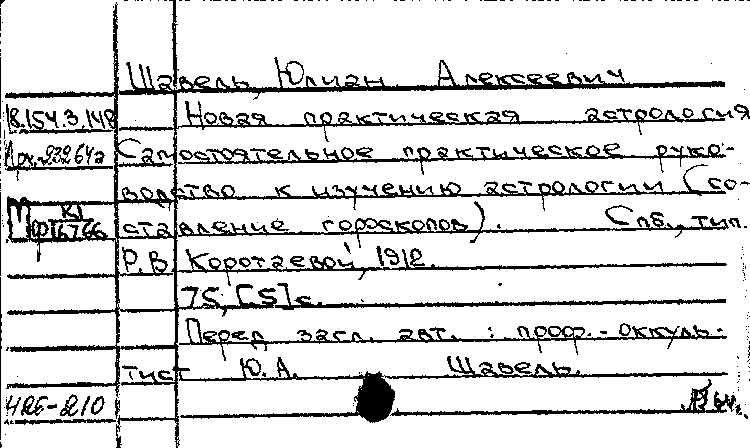 Шавель, Юлиан Алексеевич
18.154.3.148 Новая практическая астрология
Арх. Самостоятельное практическое руко-
водство к изучению астрологии (со-
ставление гороскопов). Спб., тип.
Р. В. Коротаевой, 1912.
75, [5] с.
Перед загл. авт. : проф. - оккуль-
тист Ю. А. Шавель.
426-210